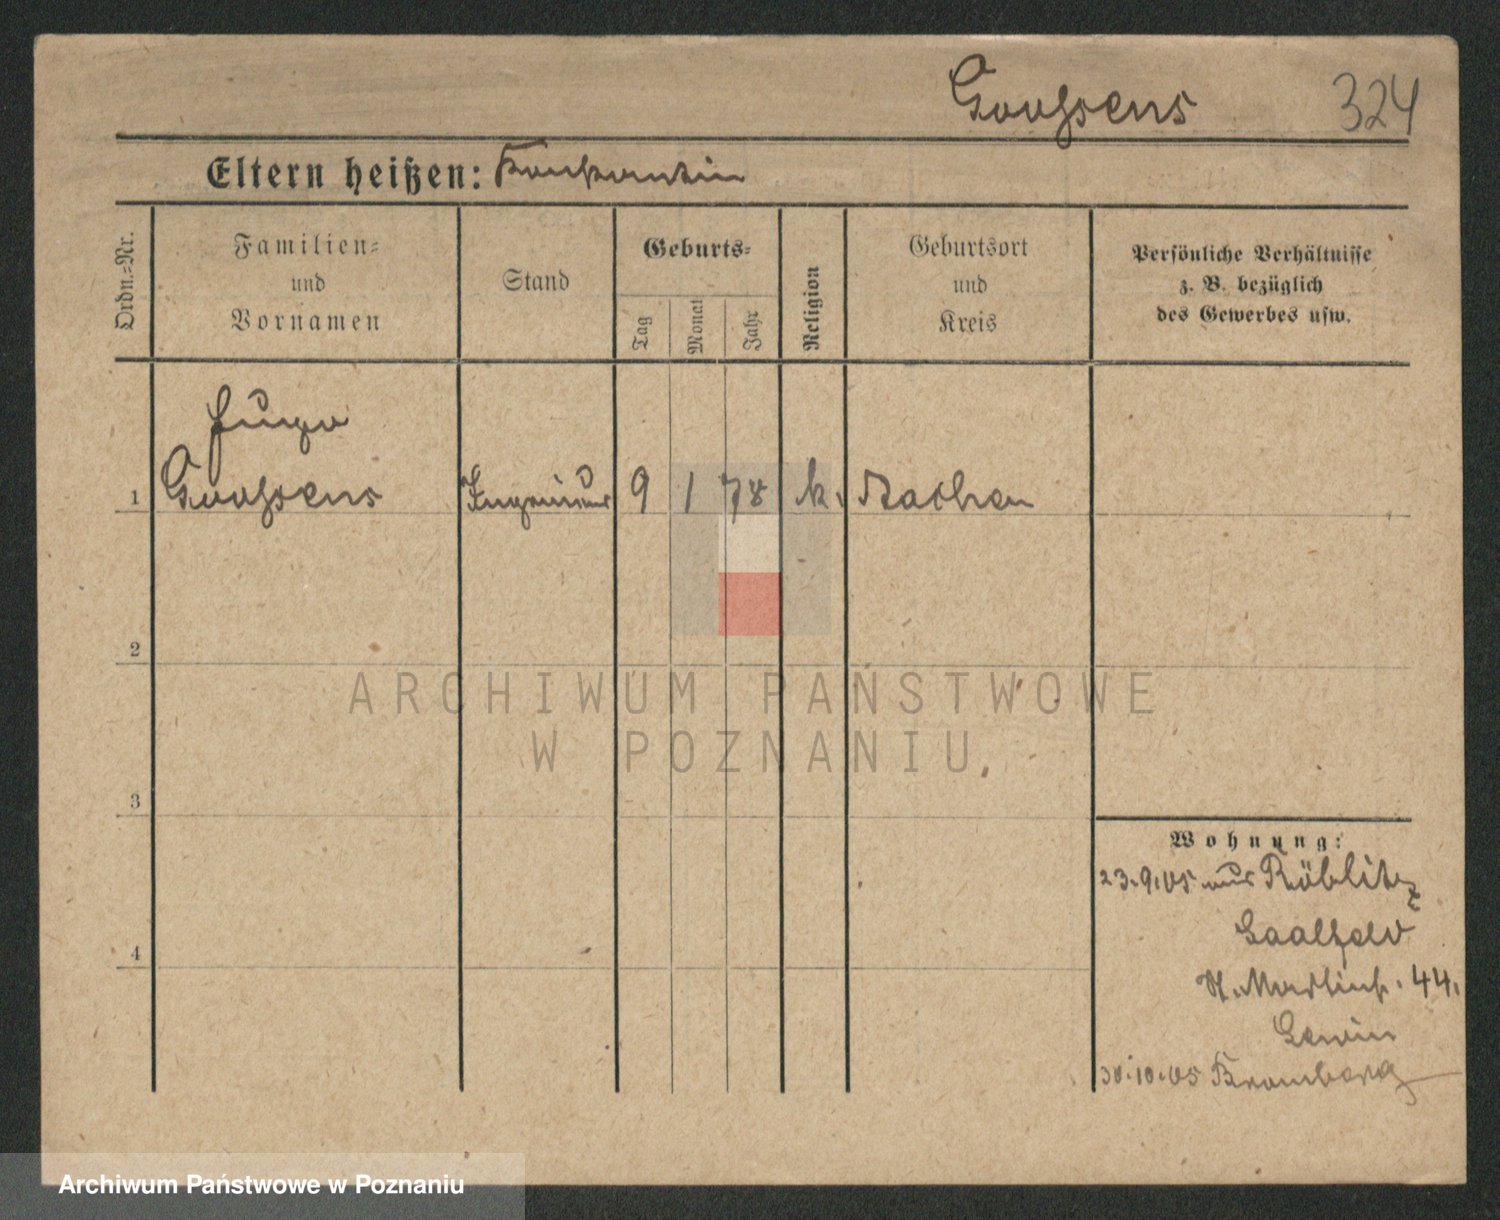 Goossens 324
Eltern heißen: Konstantin
Ordn.=Nr.
Familien=
und
Vornamen
Stand
Geburts=
Tag
Monat
Jahr
Religion
Geburtsort
und
Kreis
Persönliche Verhältnisse
z. B. bezüglich
des Gewerbes usw.
Hugo
1 Goossens Ingenieur 9 1 78 k. Aachen
2
3
4
Wohnung:
23.9.05 aus Röblitz
Saalfeld
St. Martinst. 44.
Lewin
30.10.05 Bromberg
ARCHIWUM PAŃSTWOWE
W POZNANIU
Archiwum Państwowe w Poznaniu